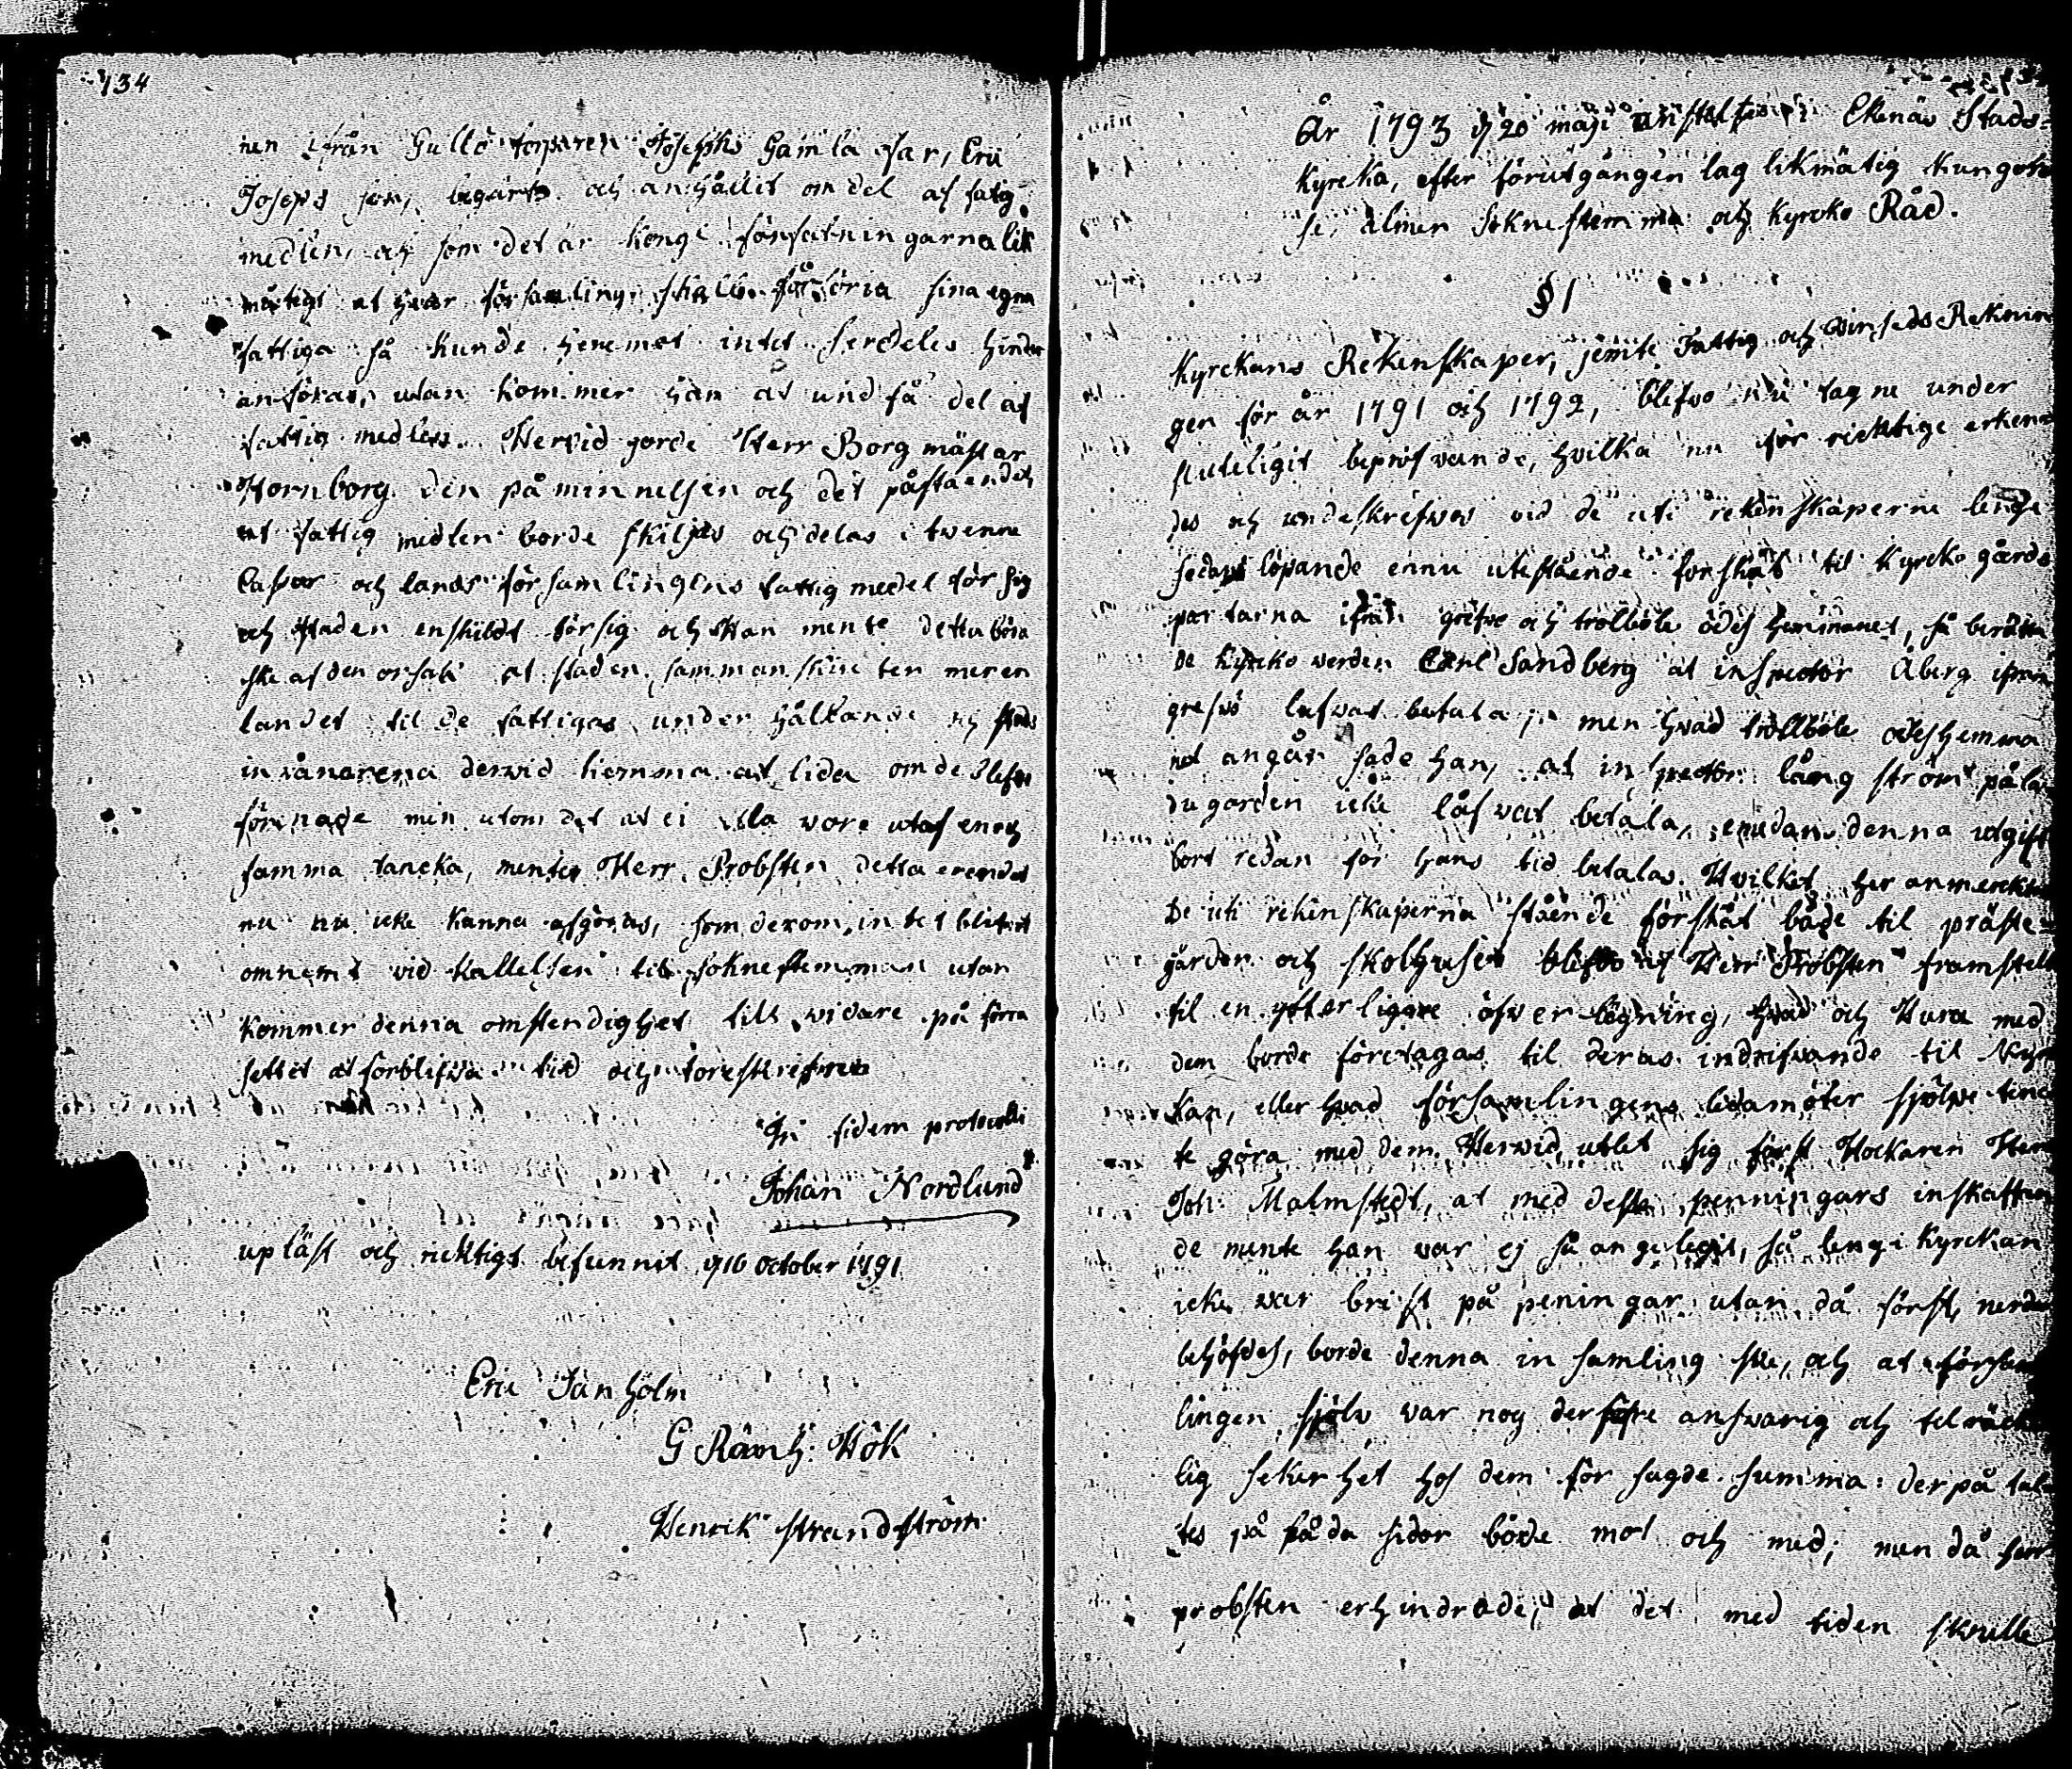 134
nen ifrån Gullö torparen Josephs Gamla far, Eric
Joseps son, begärts och anhållit om del af fatig
medlen, och som det är kongl. författningarna lik
mätigt at hvar församling skall försöria sina egna
fattiga så kunde heremot intet serdeles hinder
anföras, utan kommer han at undfå del af
fattig medlen. Hervid gorde Herr Borgmästar
Hornborg den påminnelsen och det påståendet
at fattig medlen borde skiljas och delas i twenne
Cassor och lands församlingens fattig medel för sig
och staden enskildt för sig och Han mente detta böra
ske af den orsak at staden samman skiuter mer en
landet til de fattigas underhållande och stads
invånarena dervid komma at lida om de blefve
förenade men utom det at ei alla vore utaf en och
samma tancka, mente Herr Probsten detta erendet
nu icke kunna afgöras, som derom intet blifvit
omnemt vid kallelsen till sokne stemman utan
kommer denna omstendighet till vidare på förra
settet at förblifwa tid och föreskrifven
In fidem protocolli
Johan Nordlund
upläst och ricktigt befunnit d 16 October 1791
Eric Janholm
G Rämh: Hök
Henrik strandström
År 1793 d 20 maji anstaltes i Ekenäs Stads-
kyrcka, efter förutgången lag likmätig kungörel
se, almen Sokne stemma och kyrcko Råd.
§ 1
Kyrckans Rekenskaper, jemte Fattig och Reknin
gen för år 1791 och 1792, blefwo nu tagne under
sluteligit bepröfvande, hvilka nu för ricktige erken
des och undeskrefwos vid de uti rekenskaperne lenge
sedan löpande ennu utestående forskåt til kyrcko gårds
partarna ifrån grefwe och trollböle ödes hemmanet, så berätta
de kyrcko verden Carl Sandberg at inspector Åberg ifrån
lofvat betala, men hvad trollböle ödeshemma
net angår sade han, at inspector långström på la
dugorden icke låfvat betala, emedan denna utgift
bort redan för hans tid betalas. Hvilket her anmercktes
De uti rekenskaperna stående förskåt både til präste-
gården och skolhuset blefvo af Herr Probsten framstelt
til en ytterligare öfverlegning, hvad och Huru med
dem borde företagas til deras indrifvande til Kyr
kan, eller hvad församlingens ledamöter sjelfve tenck
te göra med dem. Hervid utlet sig först Hockaren Herr
Joh: Malmstedt, at med desse penningars inskaffan
de mente han var ej så angelegit, så lenge kyrckan
icke var brist på peningar utan då först, nerde
behöfdes, borde denna insamling ske, och at försam
lingen sjelv var nog derföre answarig och tilräck
lig sekerhet hos dem för sagde summa: der på tal-
tes på båda sidor både mot och med; men då herr
probsten erhindrade, at det med tiden skulle